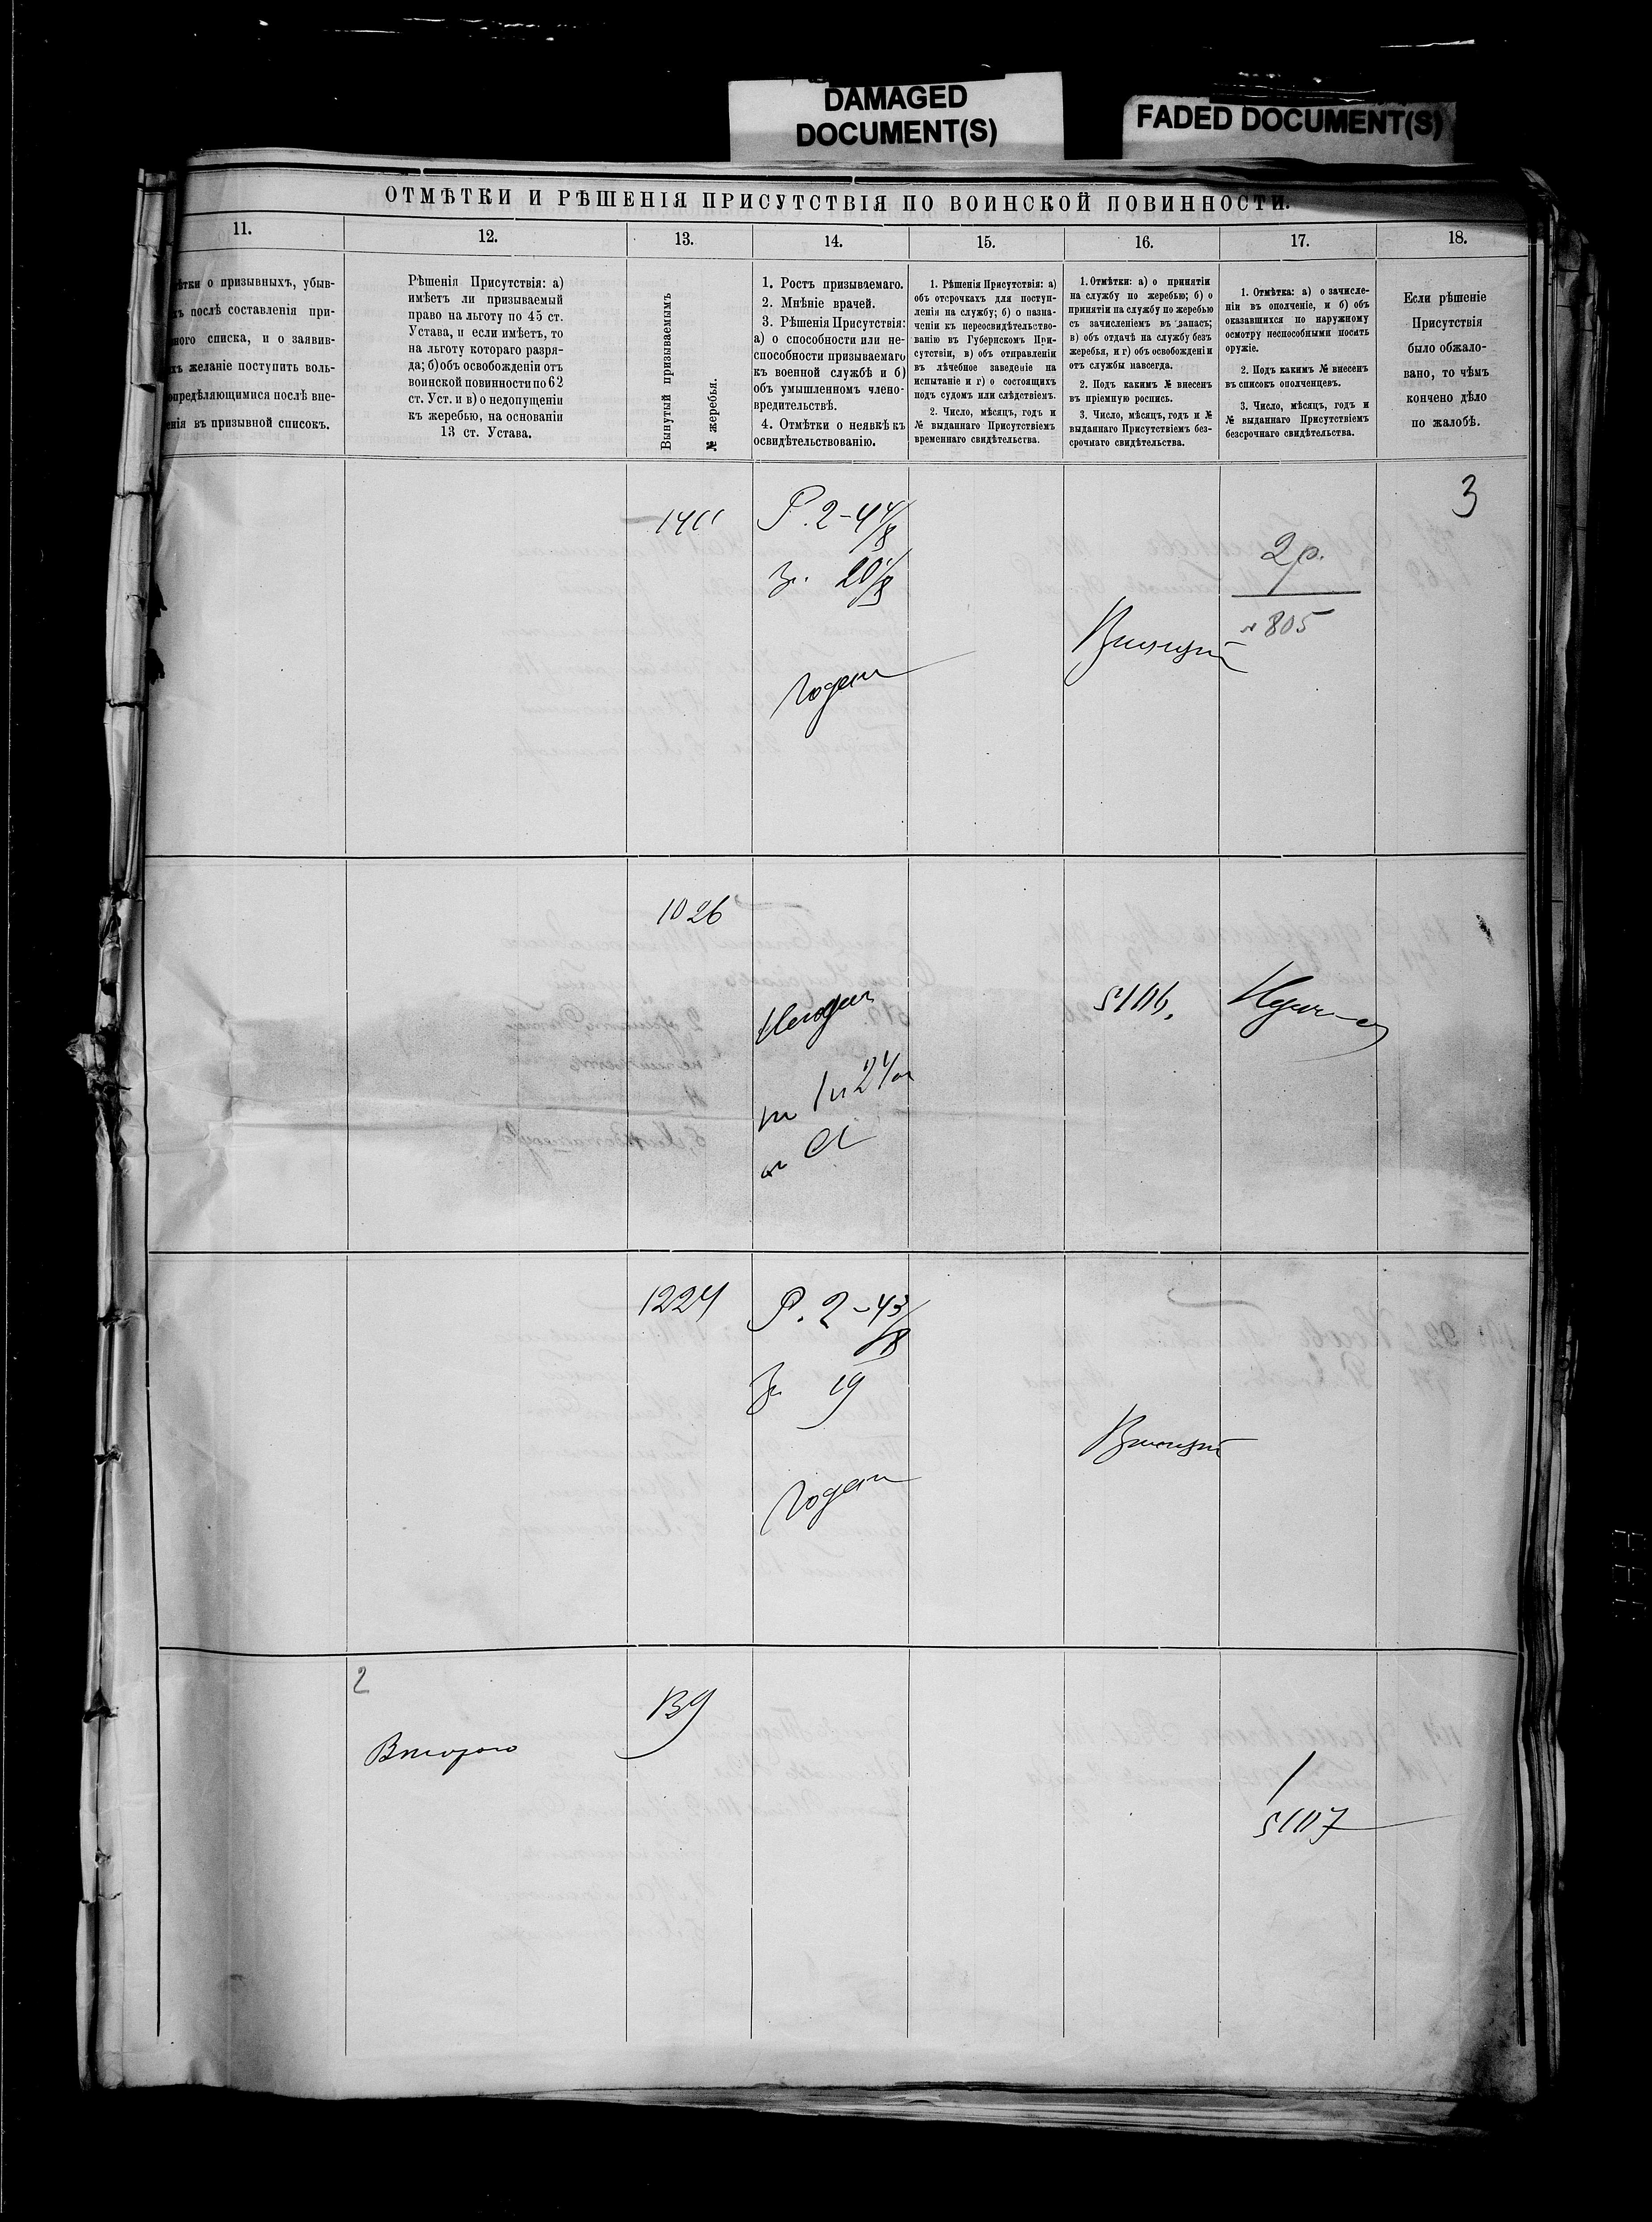 DAMAGED
DOCUMENT(S)
FADED DOCUMENT(S)
ОТМѢТКИ И РѢШЕНІЯ ПРИСУТСТВІЯ ПО ВОИНСКОЙ ПОВИННОСТИ.
11.
о призывныхъ, убыв-
послѣ составленія при-
списка, и о заявив-
желаніе поступить воль-
опредѣляющимися послѣ вне-
въ призывной списокъ.
12.
Рѣшенія Присутствія: а)
имѣетъ ли призываемый
право на льготу по 45 ст.
Устава, и если имѣетъ, то
на льготу котораго разря-
да; б) объ освобожденіи отъ
воинской повинности по 62
ст. Уст. и в) о недопущеніи
къ жеребью, на основаніи
13 ст. Устава.
13.
Вынутый призываемымъ
№ жеребья.
14.
1. Ростъ призываемаго.
2. Мнѣніе врачей.
3. Рѣшенія Присутствія:
а) о способности или не-
способности призываемаго
къ военной службѣ и б)
объ умышленномъ члено-
вредительствѣ.
4. Отмѣтки о неявкѣ къ
освидѣтельствованію.
15.
1. Рѣшенія Присутствія: а)
объ отсрочкахъ для поступ-
ленія на службу; б) о назна-
ченіи къ переосвидѣтельство-
ванію въ Губернскомъ При-
сутствіи, в) объ отправленіи
въ лѣчебное заведеніе на
испытаніе и г) о состоящихъ
подъ судомъ или слѣдствіемъ.
2. Число, мѣсяцъ, годъ и
№ выданнаго Присутствіемъ
временнаго свидѣтельства.
16.
1. Отмѣтки: а) о принятіи
на службу по жеребью; б) о
принятіи на службу по жеребью
съ зачисленіемъ въ запасъ;
в) объ отдачѣ на службу безъ
жеребья, и г) объ освобожденіи
отъ службы навсегда.
2. Подъ какимъ № внесенъ
въ пріемную роспись.
3. Число, мѣсяцъ, годъ и №
выданнаго Присутствіемъ без-
срочнаго свидѣтельства.
17.
1. Отмѣтка: а) о зачисле-
ніи въ ополченіе, и б) объ
оказавшихся по наружному
осмотру неспособными носить
оружіе.
2. Подъ какимъ № внесенъ
въ списокъ ополченцевъ.
3. Число, мѣсяцъ, годъ и
№ выданнаго Присутствіемъ
безсрочнаго свидѣтельства.
18.
Если рѣшеніе
Присутствія
было обжало-
вано, то чѣмъ
кончено дѣло
по жалобѣ.
3
Р. 2-4 4/8
20 1/8
Годен
2 р.
№ 805
1026
Негоден
5106.
1224
Р. 2-4 3/8
19
Годен
2
Второго
139
1
5107